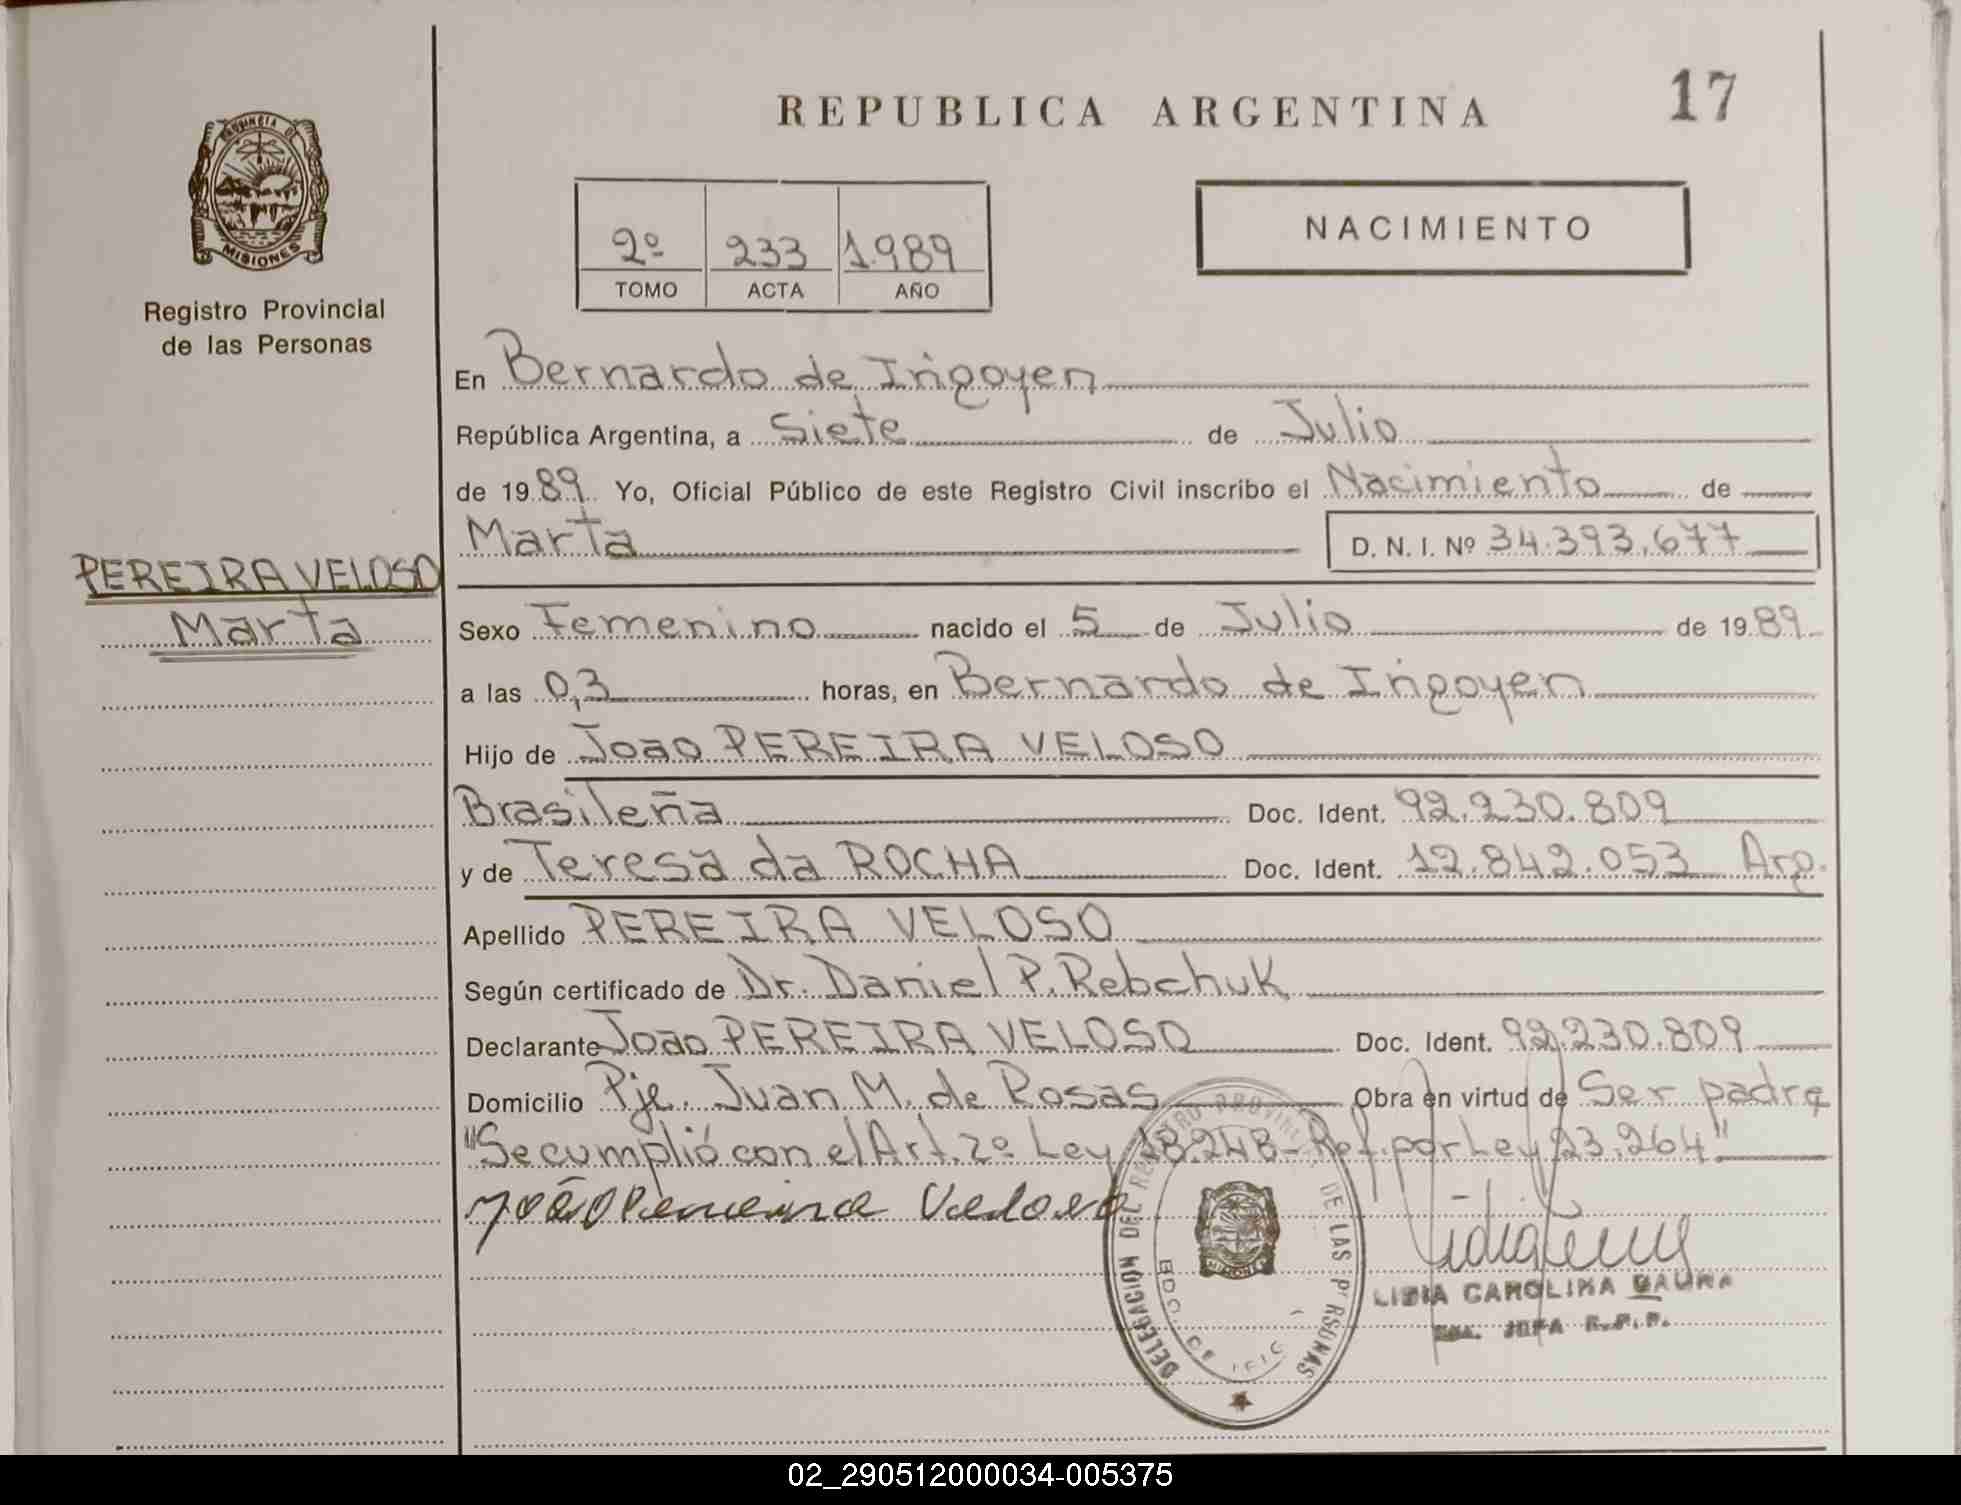 REPUBLICA ARGENTINA
17
PROVINCIA DE
MISIONES
Registro Provincial
de las Personas
2º 233 1.989
TOMO ACTA AÑO
NACIMIENTO
En Bernardo de Irigoyen
República Argentina, a Siete de Julio
de 1989 Yo, Oficial Público de este Registro Civil inscribo el Nacimiento de
Marta D. N. I. Nº 34.393.677
PEREIRA VELOSO
Marta
Sexo Femenino nacido el 5 de Julio de 1989
a las 0,3 horas, en Bernardo de Irigoyen
Hijo de João PEREIRA VELOSO
Brasileña Doc. Ident. 92.230.809
y de Teresa da ROCHA Doc. Ident. 12.842.053 Arg.
Apellido PEREIRA VELOSO
Según certificado de Dr. Daniel P. Rebchuk
Declarante João PEREIRA VELOSO Doc. Ident. 92.230.809
Domicilio Pje. Juan M. de Rosas Obra en virtud de Ser padre
"Se cumplió con el Art. 2º Ley 18.248 - Ref. por Ley 23.264"
João Pereira Veloso
DELEGACION DEL REGISTRO PROVINCIAL DE LAS PERSONAS
BDO. DE
MISIONES
LIDIA CAROLINA
JEFA R.P.P.
02_290512000034-005375